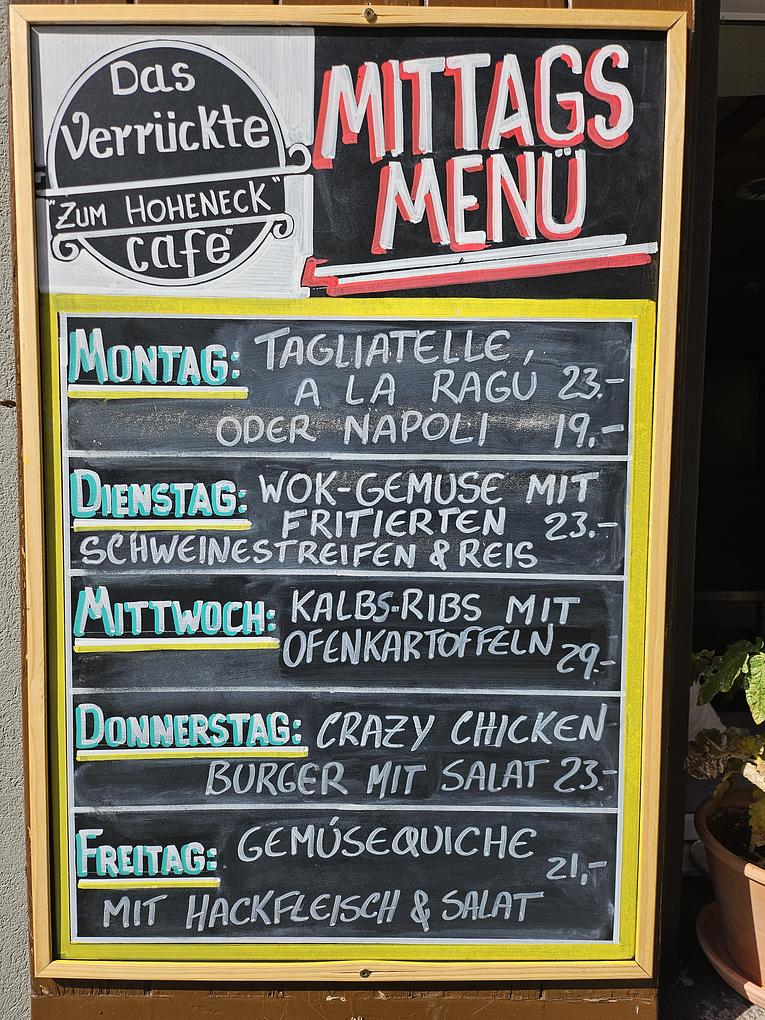 Das
Verrückte
"ZUM HOHENECK"
café
MITTAGS
MENÜ
MONTAG: TAGLIATELLE,
A LA RAGU 23.-
ODER NAPOLI 19.-
DIENSTAG: WOK-GEMUSE MIT
FRITIERTEN 23.-
SCHWEINESTREIFEN & REIS
MITTWOCH: KALBS-RIBS MIT
OFENKARTOFFELN 29.-
DONNERSTAG: CRAZY CHICKEN
BURGER MIT SALAT 23.-
FREITAG: GEMÚSEQUICHE
21,-
MIT HACKFLEISCH & SALAT